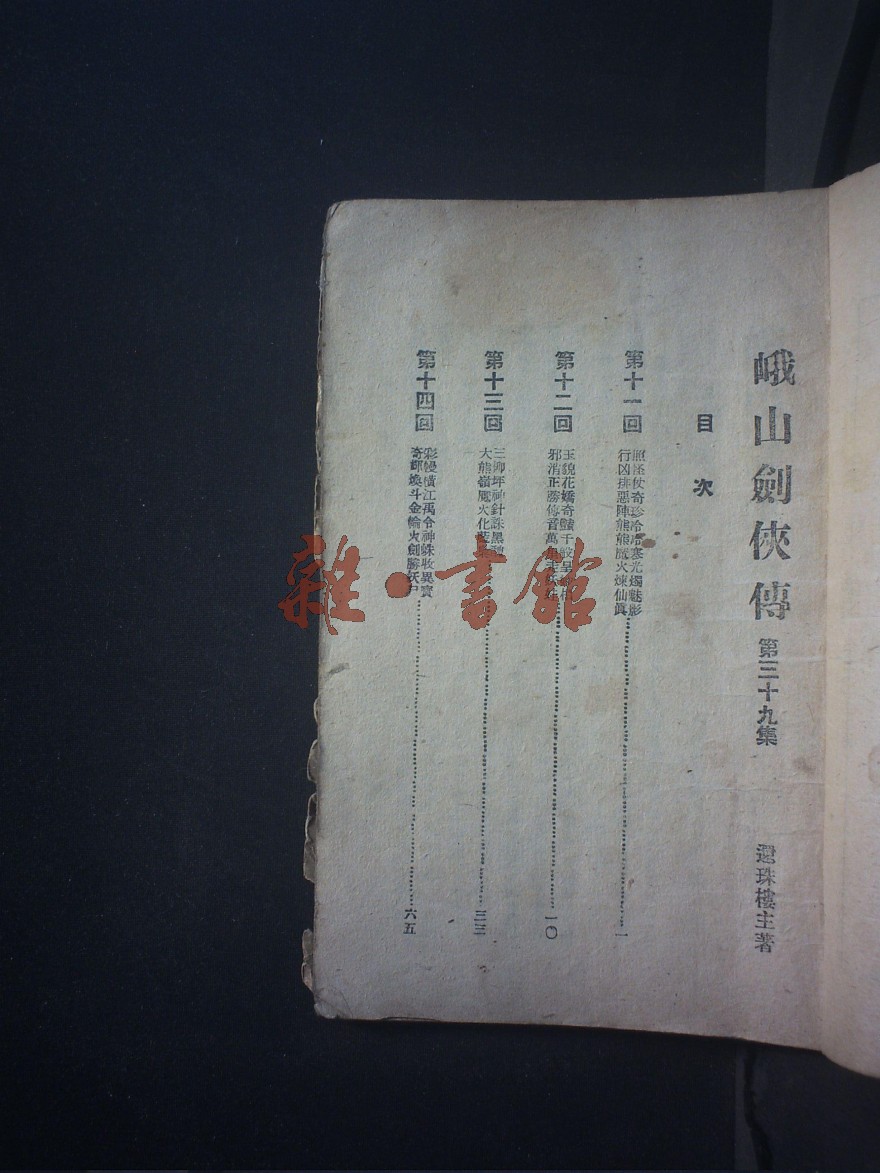 峨山劍俠傳 第三十九集 還珠樓主著
目次
第十一回
仗奇珍冷冷寒光燭魅影
行凶排惡陣熊熊魔火煉仙真 一
第十二回
玉貌花嬌奇豔千般呈
邪消正勝傳音萬里走妖 一〇
第十三回
三卿坪神針誅黑
大熊嶺魔火化藍 三三
第十四回
彩幔橫江禹令神蛛收異寶
奇輝煥斗金輪火劍勝妖尸 六五
雜·書館